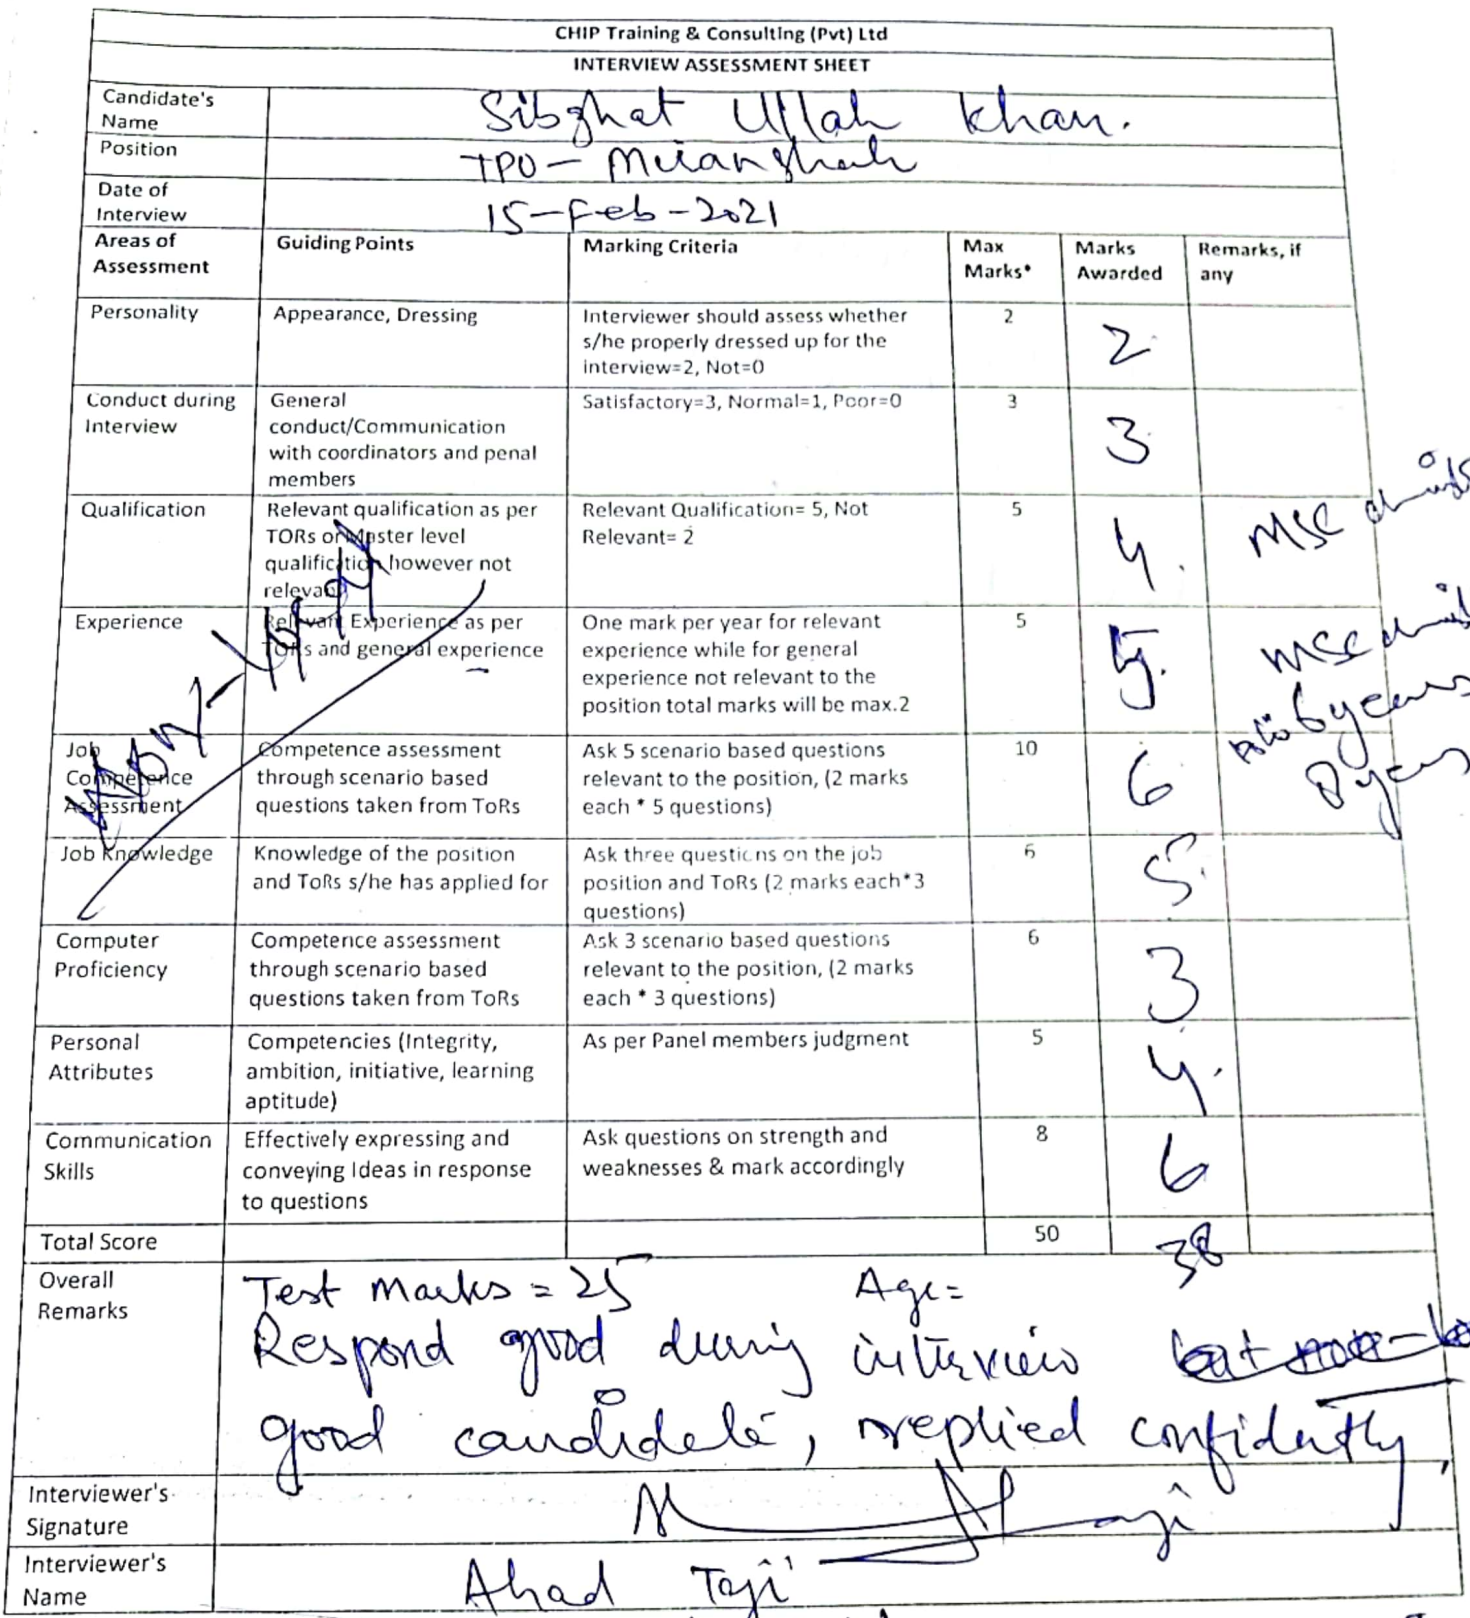 CHIP Training & Consulting (Pvt) Ltd
INTERVIEW ASSESSMENT SHEET
Candidate's Name Sibghat Ullah Khan.
Position TPO - Miranshah
Date of Interview 15-Feb-2021
Areas of Assessment Guiding Points Marking Criteria Max Marks* Marks Awarded Remarks, if any
Personality Appearance, Dressing Interviewer should assess whether s/he properly dressed up for the interview=2, Not=0 2 2
Conduct during Interview General conduct/Communication with coordinators and penal members Satisfactory=3, Normal=1, Poor=0 3 3
Qualification Relevant qualification as per TORs or Master level qualification however not relevant Relevant Qualification= 5, Not Relevant= 2 5 4. MSc
Experience Relevant Experience as per TORs and general experience One mark per year for relevant experience while for general experience not relevant to the position total marks will be max.2 5 5. MSc
6 years
8 years
Job Competence Assessment Competence assessment through scenario based questions taken from ToRs Ask 5 scenario based questions relevant to the position, (2 marks each * 5 questions) 10 6
Job Knowledge Knowledge of the position and ToRs s/he has applied for Ask three questions on the job position and ToRs (2 marks each*3 questions) 6 5.
Computer Proficiency Competence assessment through scenario based questions taken from ToRs Ask 3 scenario based questions relevant to the position, (2 marks each * 3 questions) 6 3
Personal Attributes Competencies (Integrity, ambition, initiative, learning aptitude) As per Panel members judgment 5 4.
Communication Skills Effectively expressing and conveying Ideas in response to questions Ask questions on strength and weaknesses & mark accordingly 8 6
Total Score 50 38
Overall Remarks Test Marks = 25 Age=
Respond good during interview
good candidate, replied confidently,
Interviewer's Signature
Interviewer's Name Ahad Taji